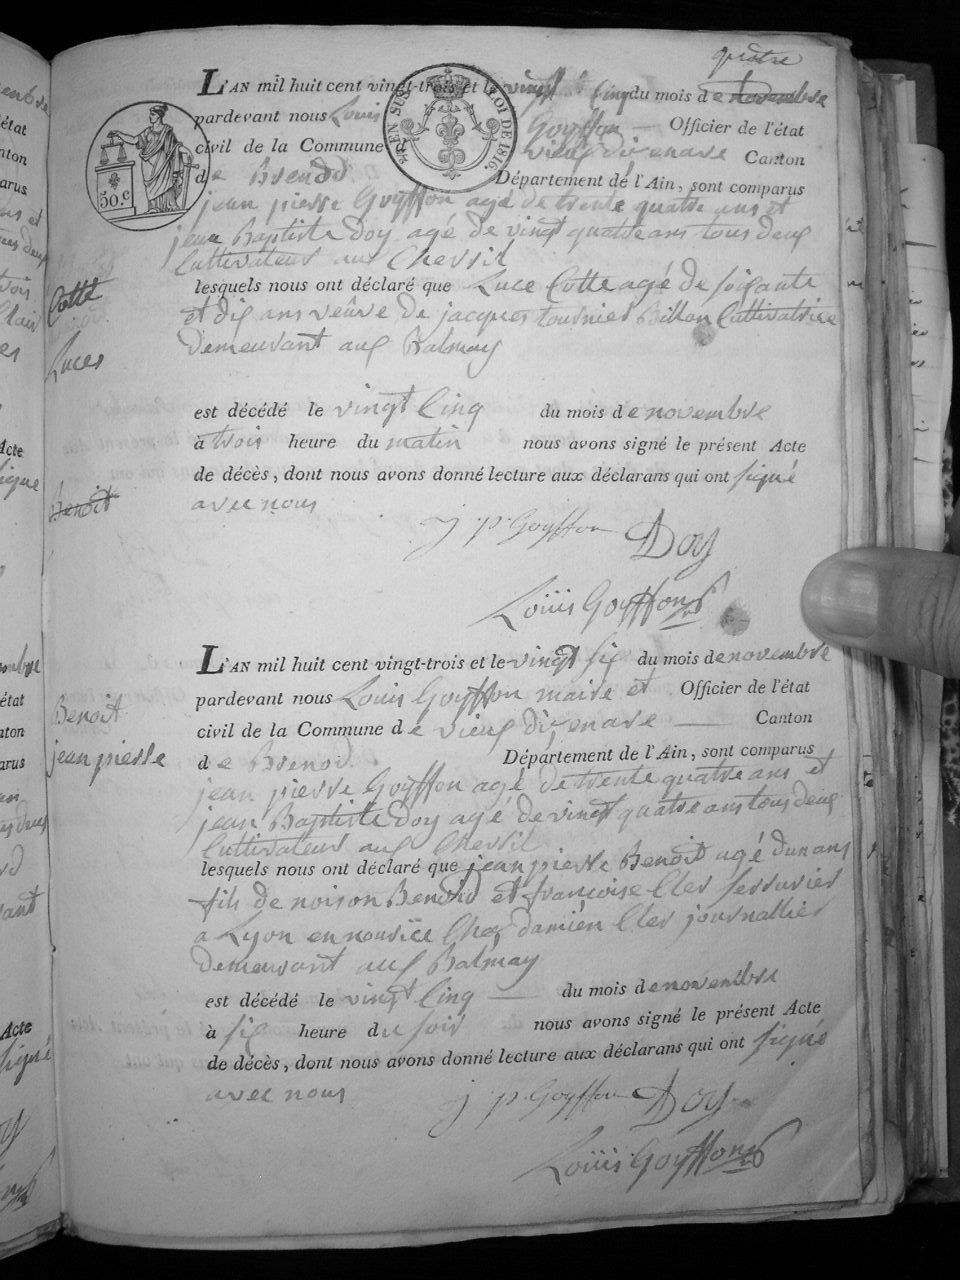 quatre
L'AN mil huit cent vingt-trois et le vingt Cinq du mois de novembre
pardevant nous Louis Goyffon Officier de l'état
civil de la Commune vieux dizenave Canton
de Brenod Département de l'Ain, sont comparus
EN SUS LOI DE 1816.
50.c
jean pierre Goyffon agé de trente quatre ans et
jean Baptiste Doy agé de vingt quatre ans tous deux
Cultivateur aux Chevril
Cotte
Luces
lesquels nous ont déclaré que Luce Cotte agé de soisante
et dix ans veûve de jacques tournier Billon Cultivatrice
demeurant aux Balmay
est décédé le vingt Cinq du mois de novembre
à trois heure du matin nous avons signé le présent Acte
de décès, dont nous avons donné lecture aux déclarans qui ont signé
avec nous
Benoit
j p Goyffon Doy
Louis Goyffon
L'AN mil huit cent vingt-trois et le vingt six du mois de novembre
pardevant nous Louis Goyffon maire et Officier de l'état
civil de la Commune de vieux dizenave Canton
de Brenod Département de l'Ain, sont comparus
Benoit
jean pierre
jean pierre Goyffon agé de trente quatre ans et
jean Baptiste Doy agé de vingt quatre ans tous deux
Cultivateurs aux Chevril
lesquels nous ont déclaré que jean pierre Benoit agé dun ans
fils de noison Benoid et francoise Cler serrurier
a Lyon en nourice Chez damien Cler journallier
demeurant aux Balmay
est décédé le vingt Cinq du mois de novembre
à six heure du soir nous avons signé le présent Acte
de décès, dont nous avons donné lecture aux déclarans qui ont signé
avec nous
j p Goyffon Doy
Louis Goyffon